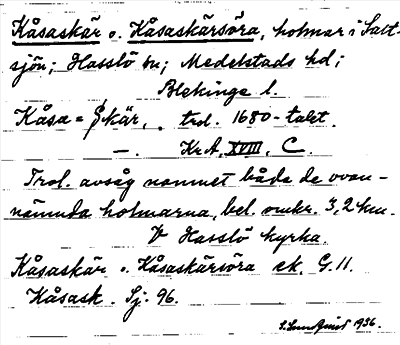 Kåsaskär o. Kåsaskärsöra, holmar i Salt-
sjön; Hasslö sn; Medelstads hd;
Blekinge l.
Kåsa = skär, . trol. 1680-talet.
—. Kr A, XVIII, C.
Trol. avsåg namnet båda de ovan-
nämnda holmarna, bel. omkr. 3,2 km.
V Hasslö kyrka.
Kåsaskär o. Kåsaskärsöra ek. G. 11.
Kåsask. Sj. 96.
S. Lundquist 1936.